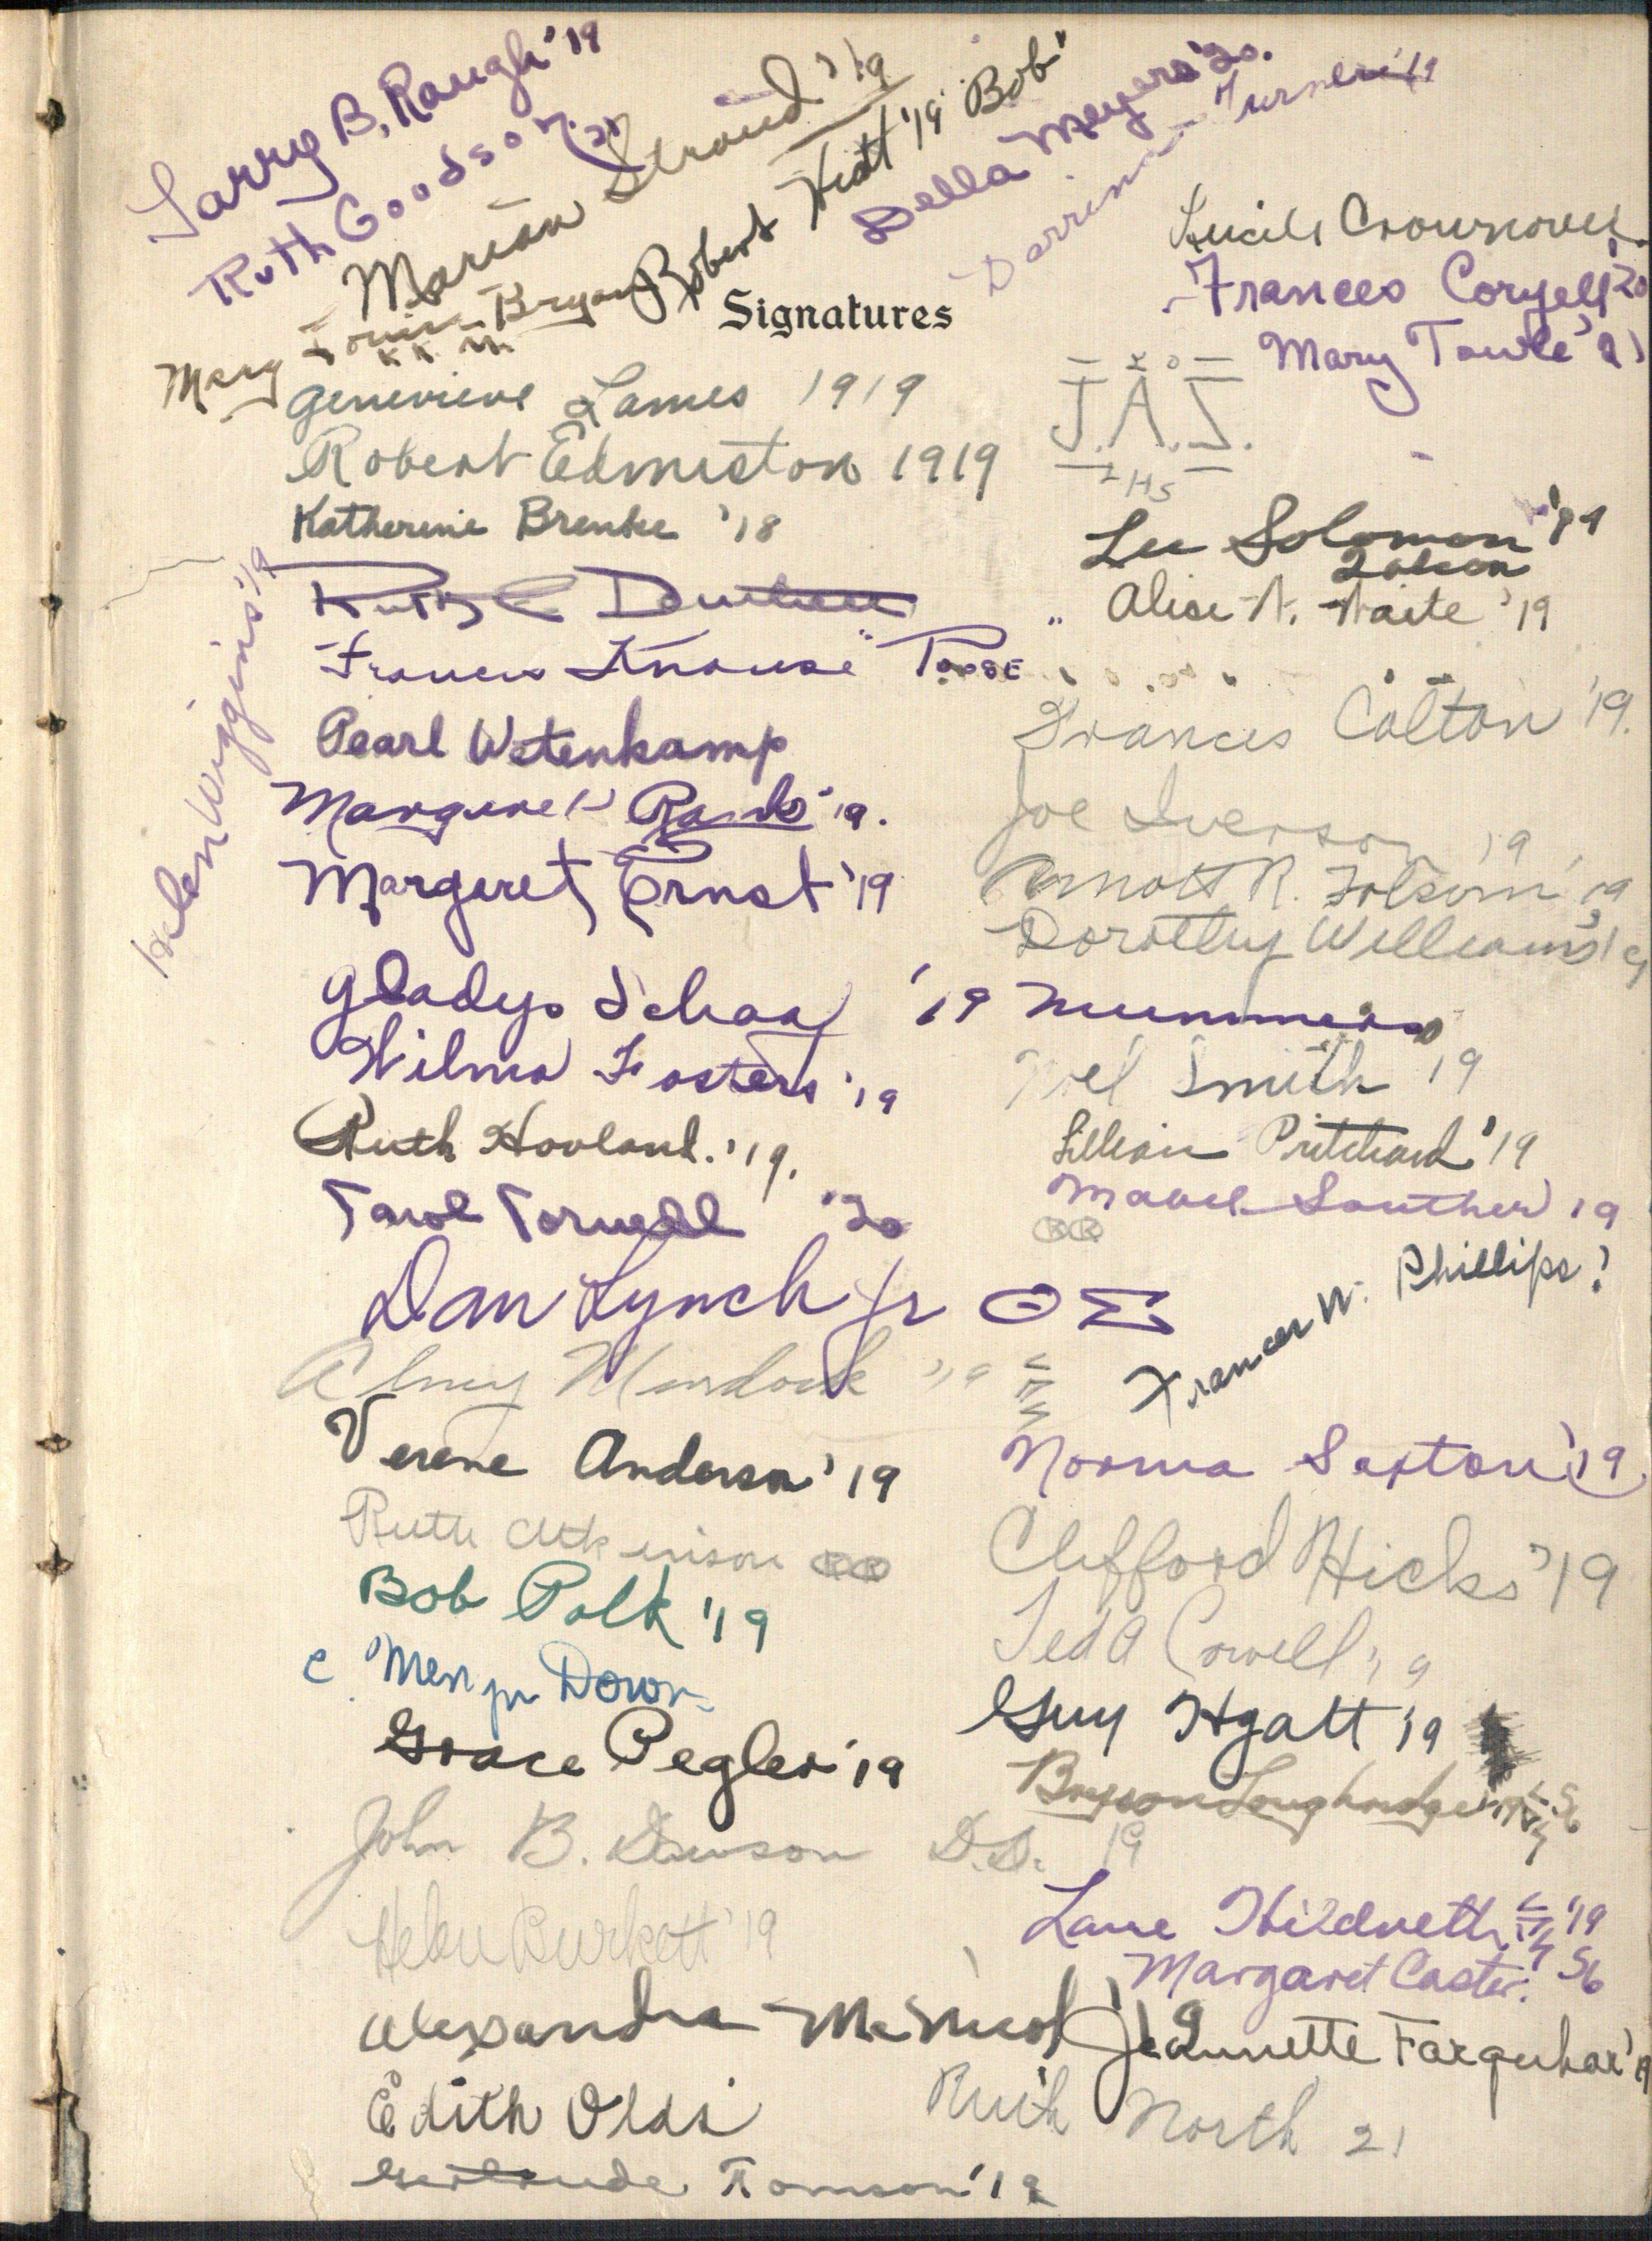 Larry B. Raugh '19
Ruth Goodson '21
Marian Stroud '19
Robert Hiatt '19 "Bob"
Della Meyers '20.
Turner '19
Mary Louise Bryan
K K
Signatures
Crownover
Frances Coryell '20
Mary Towle '21
Genevieve Lames 1919
J.A.S.
LHS
Robert Edmiston 1919
Katherine Brenke '18
Lee Solomon
Ruth
Alice N. Waite '19
Helen Wiggins '19
Francis Knouse
Frances Colton '19.
Pearl Wetenkamp
Joe Iverson '19
Margaret '19.
Arnott R. Folsom '19
Margaret Ernst '19
Dorothy Williams '19
Gladys Schaaf '19
Wilma Fosters '19
Smith 19
Ruth Hovland. '19.
Lillian Pritchard '19
'20
Mabel Souther 19
Dan Lynch Jr ΘΣ
Frances W. Phillips?
Murdock '19
Verene Anderson '19
Norma Saxton '19
Ruth Atkinson
Clifford Hicks '19
Bob Polk '19
Ted A Cowell '19
Guy Hyatt '19
Grace Pegler '19
John B. Dawson D.D. 19
Lane Hildreth '19
Helen Burkett '19
Margaret Caster.
Alexandra McNicol '19
Jeannette Farquhar '19
Edith Olds
Ruth North 21
Gertrude Tomson '19